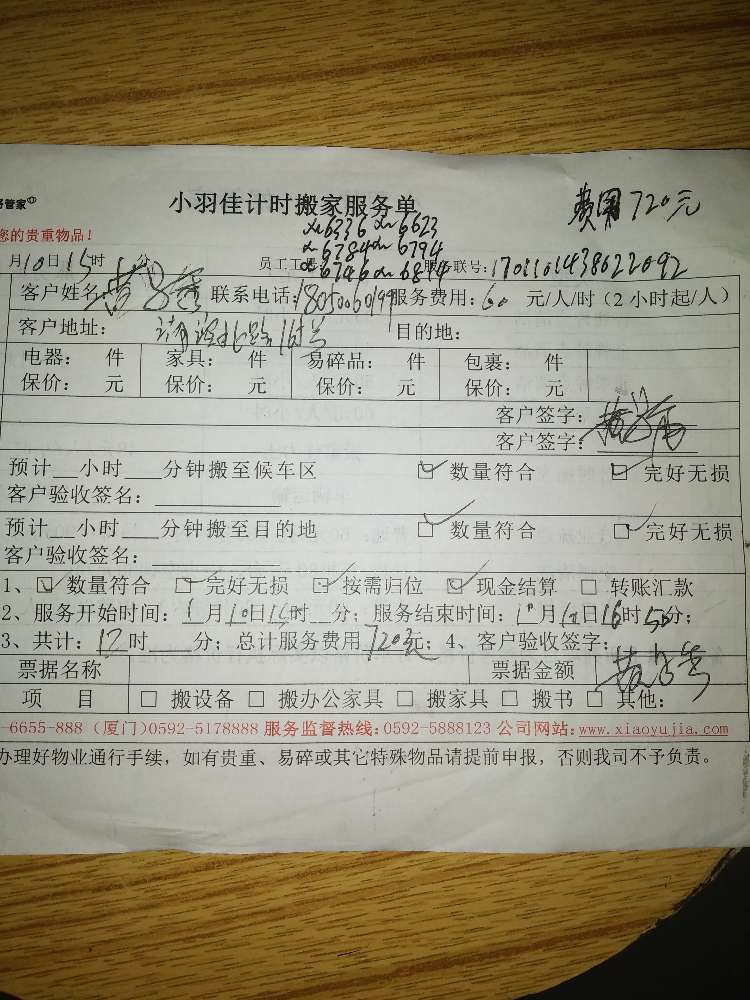 管家
小羽佳计时搬家服务单
费用720元
您的贵重物品!
x6336 x6623
x6784 x6794
x6746 x6814
月10日15时 分
员工工号: 服务联号:1701101438622092
客户姓名: 联系电话:18050060199 服务费用:60 元/人/时(2小时起/人)
客户地址: 目的地:
电器: 件 家具: 件 易碎品: 件 包裹: 件
保价: 元 保价: 元 保价: 元 保价: 元
客户签字:
客户签字:
预计__小时___分钟搬至候车区 数量符合 完好无损
客户验收签名:
预计__小时___分钟搬至目的地 数量符合 完好无损
客户验收签名:
1、 数量符合 完好无损 按需归位 现金结算 转账汇款
2、服务开始时间:1月10日 时__分;服务结束时间: 月 日16时50分;
3、共计:12时___分;总计服务费用720元;4、客户验收签字:
票据名称 票据金额
项 目 搬设备 搬办公家具 搬家具 搬书 其他:
-6655-888(厦门)0592-5178888 服务监督热线:0592-5888123 公司网站:www.xiaoyujia.com
办理好物业通行手续,如有贵重、易碎或其它特殊物品请提前申报,否则我司不予负责。